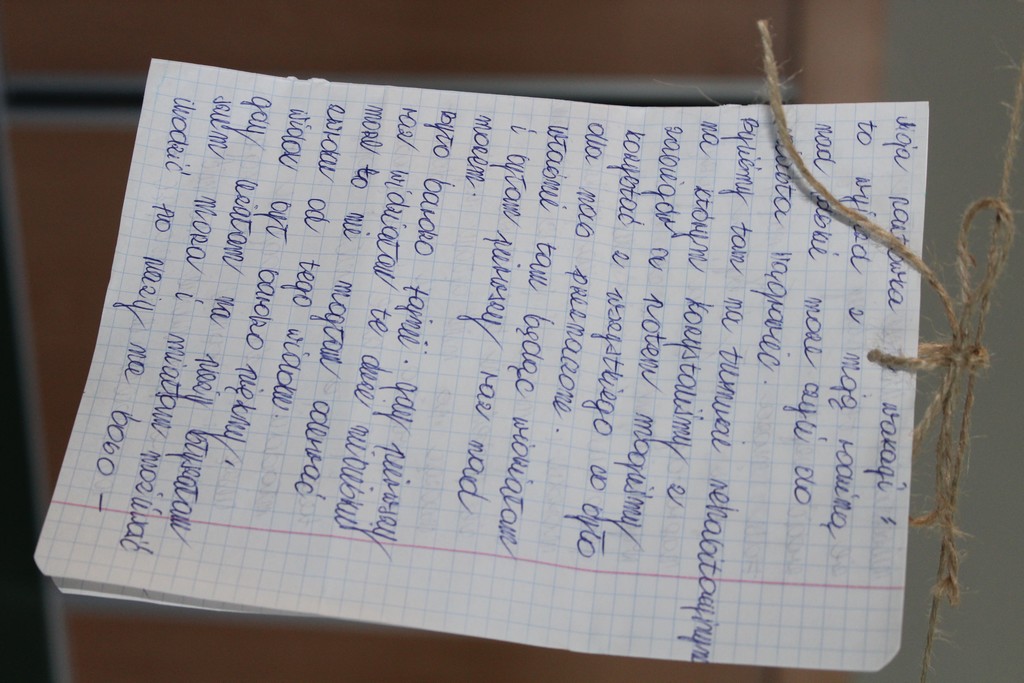 wakacji :
to wyjazd z moją rodziną
nad morze czyli do
legionic.
Byliśmy tam na turnusie rehabilitacyjnym
na którym korzystaliśmy z
zabiegów a potem mogliśmy
korzystać z wszystkiego co było
dla nas przeznaczone.
właśnie tam będąc widziałam
i byłam pierwszy raz nad
morzem.
było bardzo fajnie. gdy pierwszy
raz widziałam te dwie
morze to nie mogłam oderwać
od tego widoku.
widok był bardzo piękny.
gdy weszłam na plażę
morza i miałam
chodzić po plaży na boso –